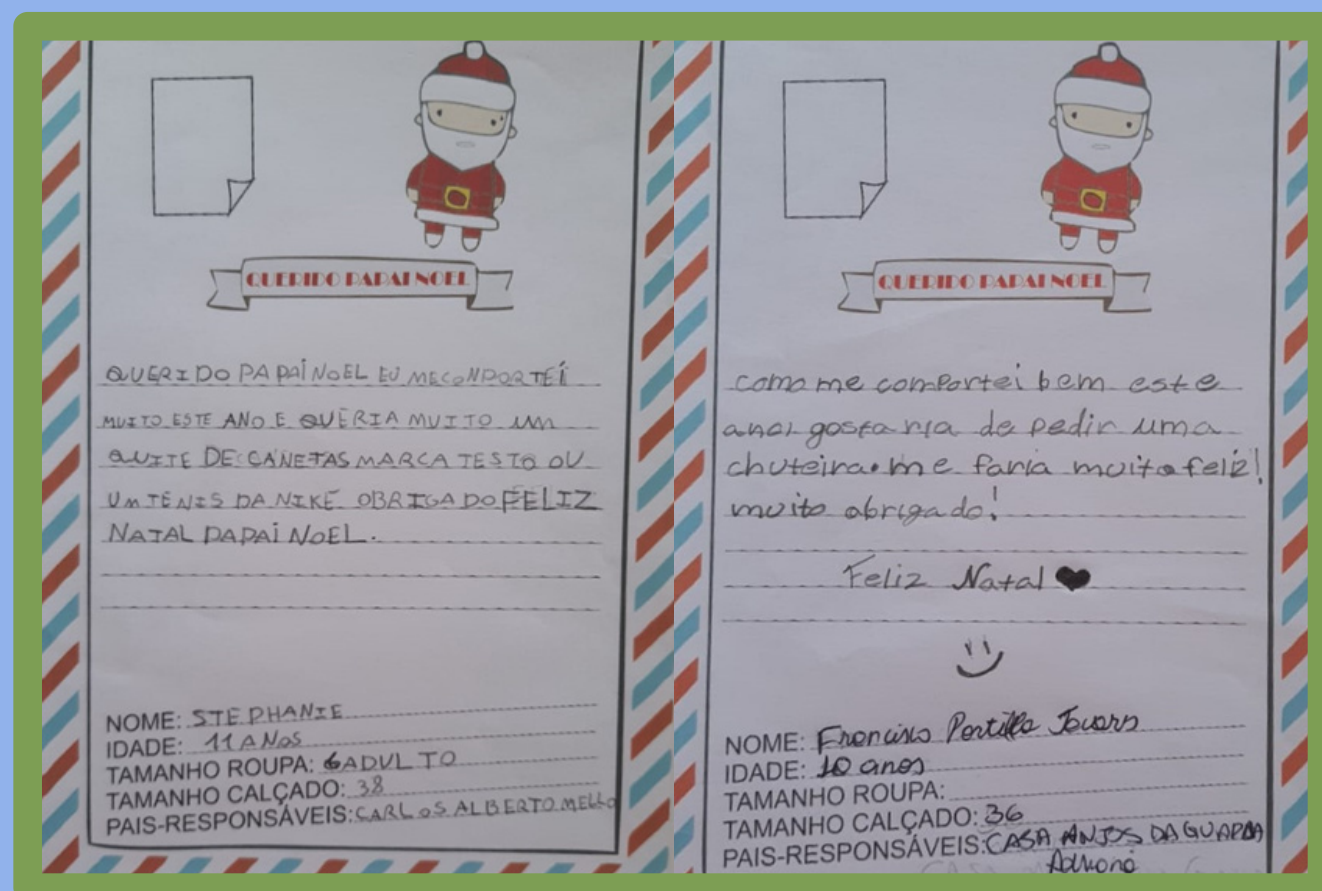 QUERIDO PAPAI NOEL
QUERIDO PAPAI NOEL EU MECONPORTEI
MUITO ESTE ANO E QUERIA MUITO UM
QUITE DE CANETAS MARCA TESTO OU
UM TENIS DA NIKE OBRIGADO FELIZ
NATAL PAPAI NOEL.
NOME: STEPHANIE
IDADE: 11 ANOS
TAMANHO ROUPA: GADULTO
TAMANHO CALÇADO: 38
PAIS-RESPONSÁVEIS: CARLOS ALBERTO MELLO
QUERIDO PAPAI NOEL
como me comportei bem este
ano, gostaria de pedir uma
chuteira. me faria muito feliz!
muito obrigado!
Feliz Natal
NOME: Francisco
IDADE: 10 anos
TAMANHO ROUPA:
TAMANHO CALÇADO: 36
PAIS-RESPONSÁVEIS: CASA ANJOS DA GUARDA